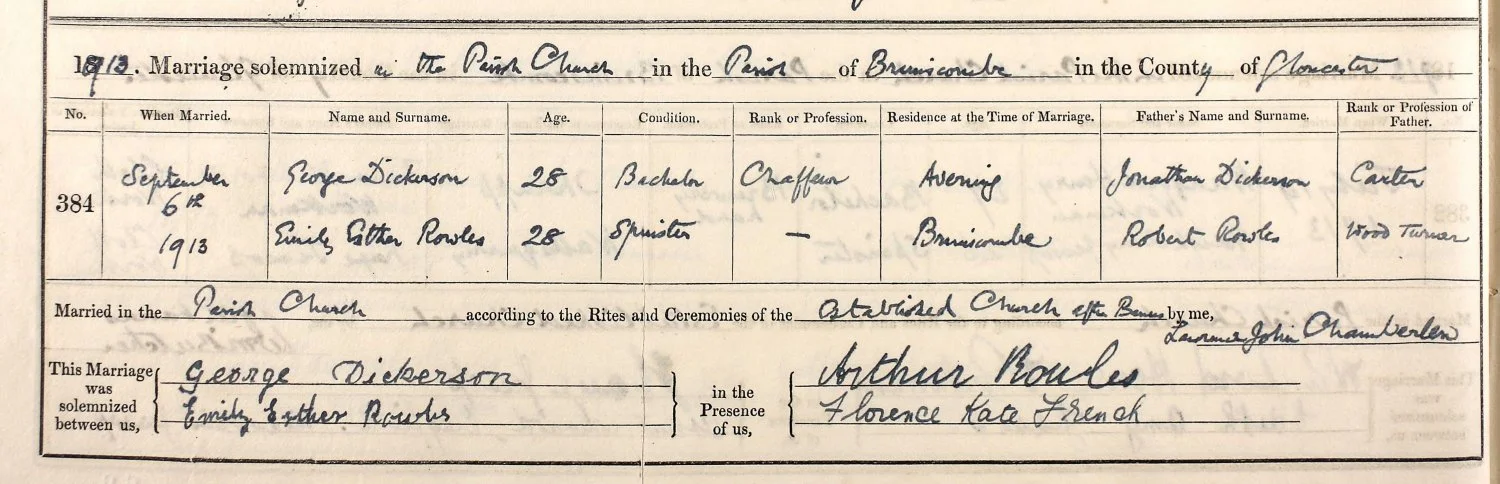 1913. Marriage solemnized in the Parish Church in the Parish of Brimscombe in the County of Gloucester
No. When Married. Name and Surname. Age. Condition. Rank or Profession. Residence at the Time of Marriage. Father's Name and Surname. Rank or Profession of Father.
384 September 6th 1913
George Dickerson 28 Bachelor Chaffeur Avening Jonathan Dickerson Carter
Emily Esther Rowles 28 Spinster — Brimscombe Robert Rowles Wood Turner
Married in the Parish Church according to the Rites and Ceremonies of the Established Church after Banns by me,
Lawrence John Chamberlen
This Marriage was solemnized between us,
George Dickerson
Emily Esther Rowles
in the Presence of us,
Arthur Rowles
Florence Kate French